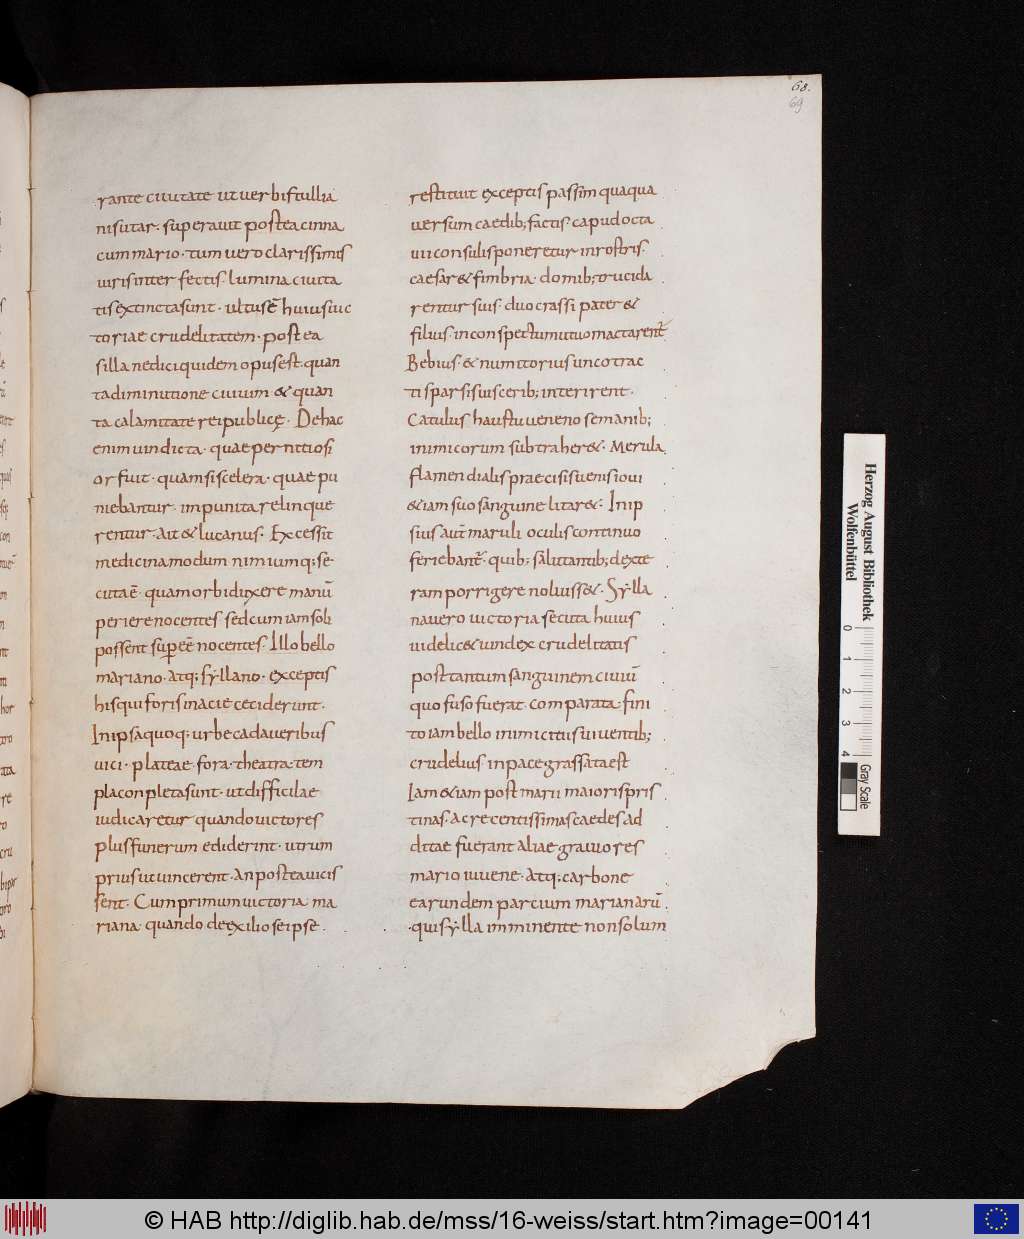 68.
69
rante ciuitate ut uerbis tullia
nis utar. superauit postea cinna
cum mario. tum uero clarissimis
uiris interfectis. lumina ciuita
tis extincta sunt. ultus ē huius uic
toriae crudelitatem. postea
silla ne dici quidem opus est. quan
ta diminutione ciuium & quan
ta calamitate rei publicę. De hac
enim uindicta. quae pernitiosi
or fuit. quam si scelera. quae pu
niebantur. impunita relinque
rentur. ait & lucanus. Excessit
medicina modum nimiumq; se
cuta ē. qua morbi duxere manū
periere nocentes sed cum iam soli
possent supēē nocentes. Illo bello
mariano. atq; syllano. exceptis
his qui foris in acie ceciderunt.
In ipsa quoq; urbe cadaueribus
uici. plateae. fora. theatra. tem
pla conpleta sunt. ut difficilae
iudicaretur quando uictores
plus funerum ediderint. utrum
prius ut uincerent. an postea uicis
sent. Cum primum uictoria ma
riana quando de exilio se ipse.
restituit exceptis passim quaqua
uersum caedib; factis. capud octa
uii consulis poneretur in rostris.
caesar & fimbria. domib; trucida
rentur suis. duo crassi pater &
filius. in conspectu mutuo mactarent̄
Bebius. & numitorius unco trac
ti sparsis uiscerib; interirent.
Catulus haustu ueneno se manib;
inimicorum subtraher&. Merula
flamen dialis praecisis uenis ioui
& iam suo sanguine litar&. In ip
sius aut̄ maruli oculis continuo
feriebant̄. quib; salutantib; dexte
ram porrigere noluiss&. Sylla
na uero uictoria secuta huius
uidelic& uindex crudelitatis
post tantum sanguinem ciuiū
quo fuso fuerat. comparata fini
to iam bello inimicitiis uiuentib;
crudelius in pace grassata est
Iam & iam post marii maioris pris
tinas. ac recentissimas caedes ad
ditae fuerant aliae grauiores
mario iuuene. atq; carbone
earundem parcium marianarū.
qui sylla imminente non solum
Herzog August Bibliothek
Wolfenbüttel
0 1 2 3 4
Gray Scale
© HAB http://diglib.hab.de/mss/16-weiss/start.htm?image=00141